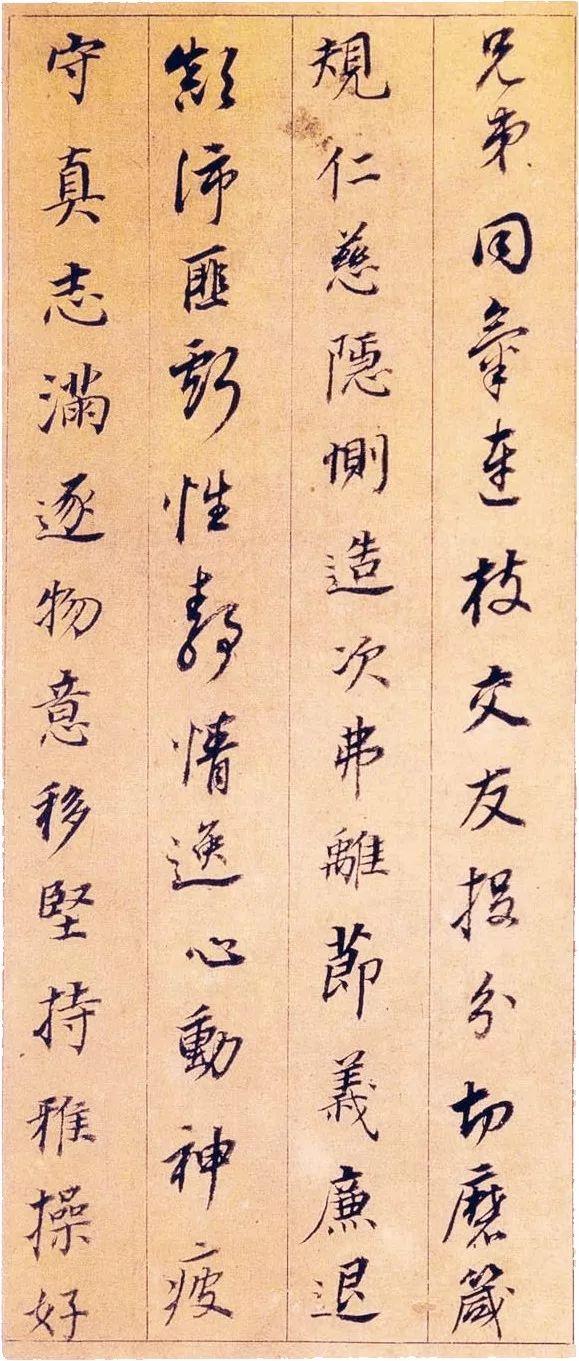 兄弟同氣連枝交友投分切磨箴
規仁慈隱惻造次弗離節義廉退
顛沛匪虧性靜情逸心動神疲
守真志滿逐物意移堅持雅操好